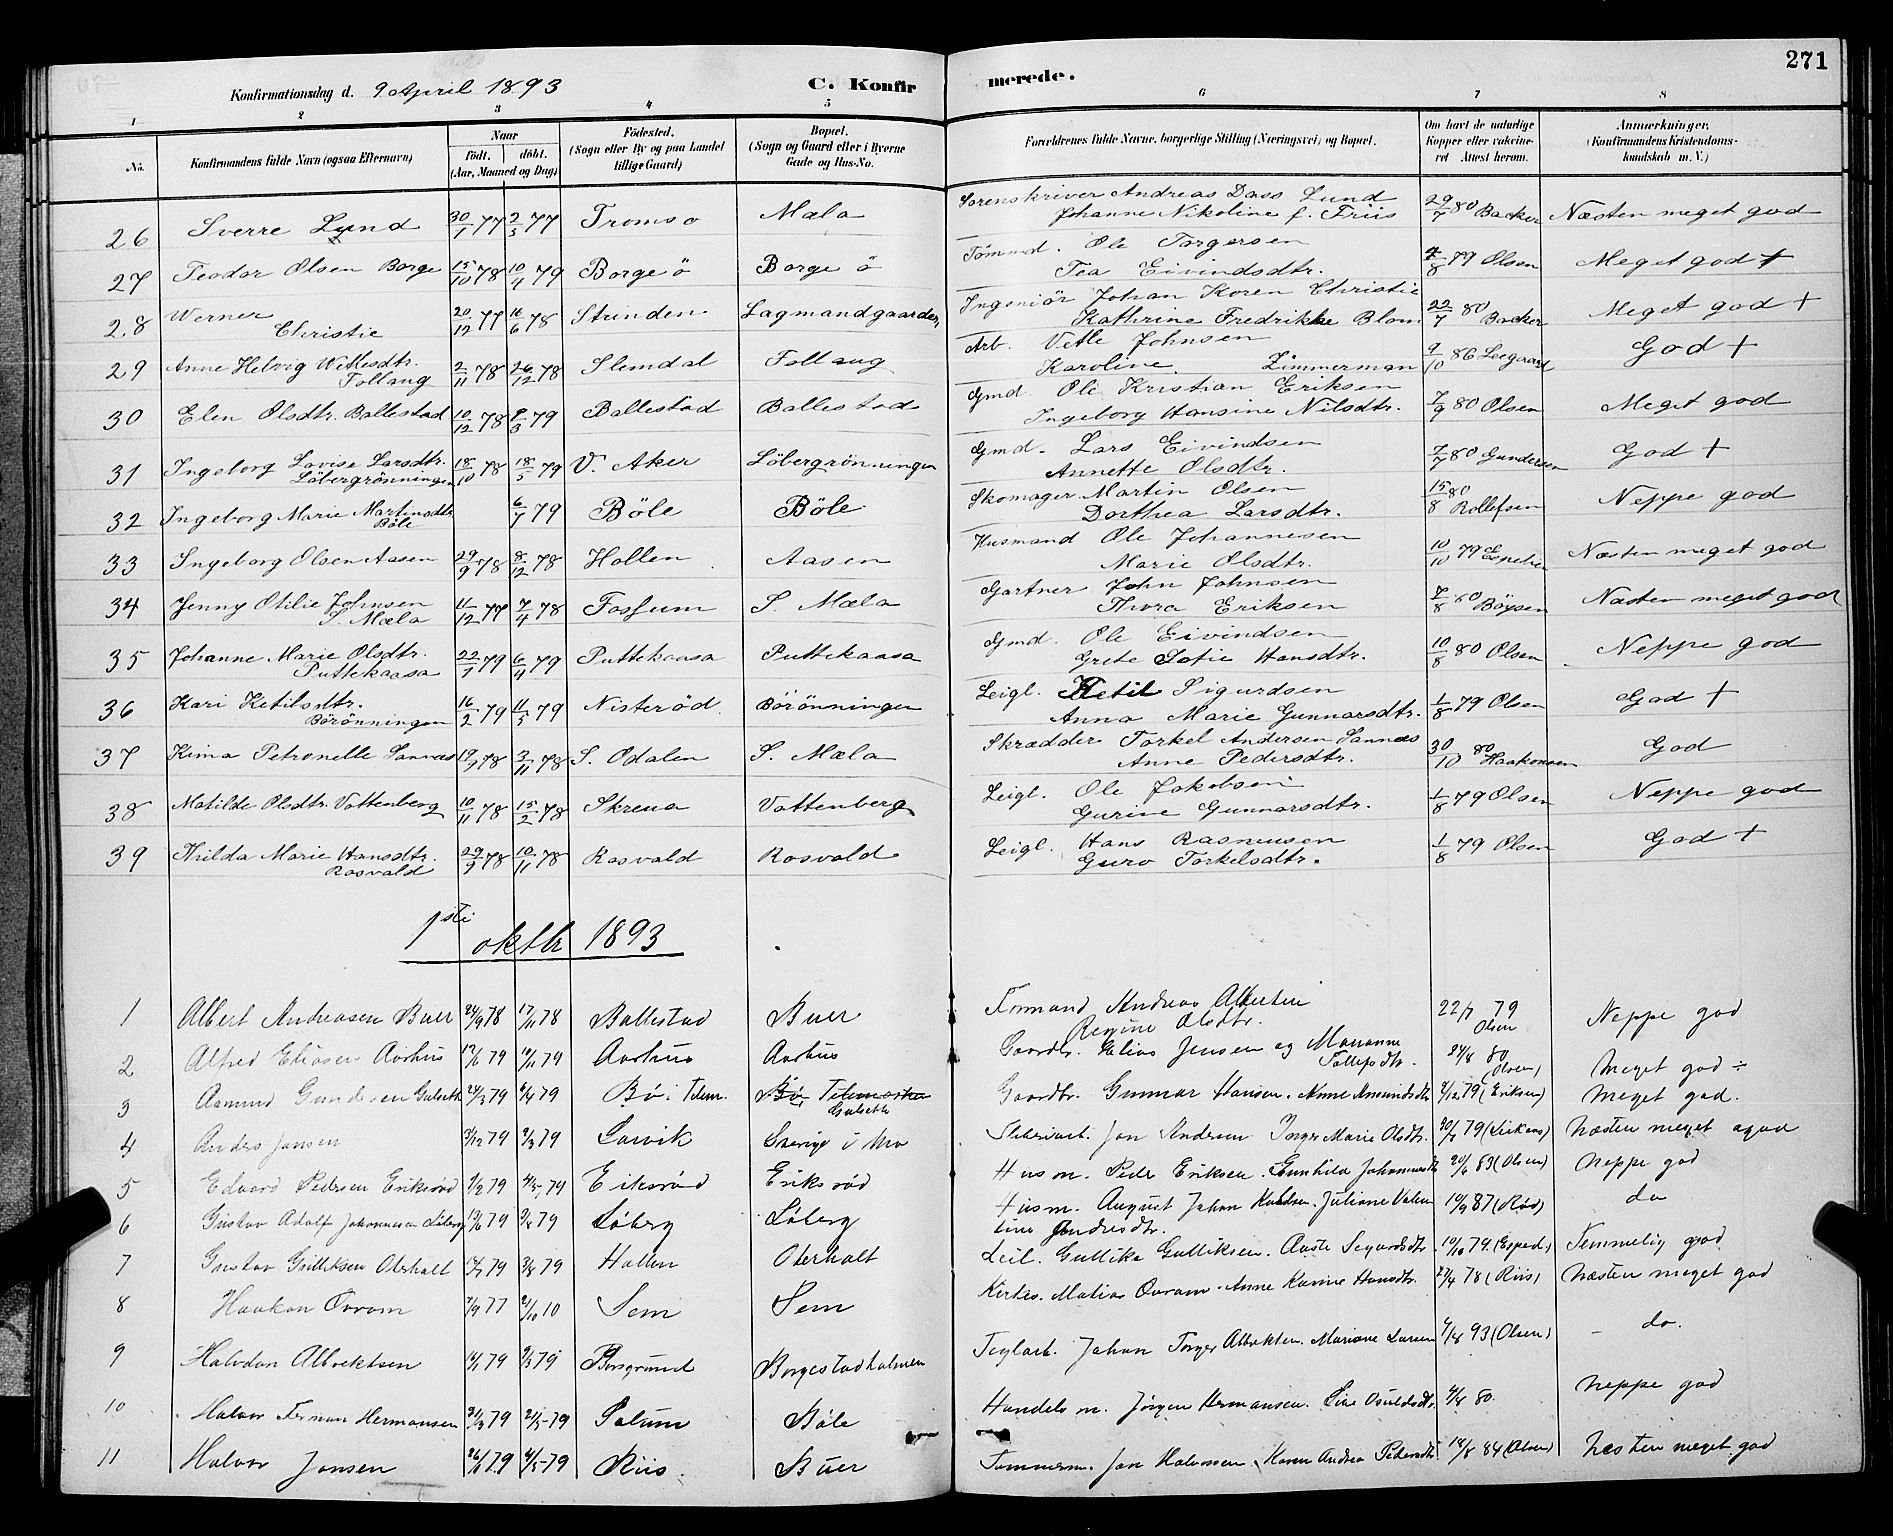 271
Konfirmationsdag d. 9 April 1893
C. Konfirmerede.
1 2 3 4 5 6 7 8
No. Konfirmandens fulde Navn (ogsaa Efternavn) Naar født. døbt. (Aar, Maaned og Dag) Fødested. (Sogn eller By og paa Landet tillige Gaard) Bopæl. (Sogn og Gaard eller i Byerne Gade og Hus-No. Forældrenes fulde Navne, borgerlige Stilling (Næringsvei) og Bopæl. Om havt de naturlige Kopper eller vakcineret Attest herom. Anmærkninger. (Konfirmandens Kristendomskundskab m. V.)
26 Sverre Lund 30/1 77 2/5 77 Tromsø Mæla Sorenskriver Andreas Dass Lund Johanne Nikoline f. Friis 29/7 80 Backer Næsten meget god
27 Teodor Olsen Borge 15/10 78 10/4 79 Borge ö Borge ö Tömmd. Ole Torgersen Tea Eivindsdtr. 4/8 79 Olsen Meget god +
28 Werner Christie 20/12 77 16/6 78 Strinden Lagmandgaarden Ingeniör Johan Koren Christie Kathrine Fredrikke Blom 22/7 80 Backer Meget god +
29 Anne Helvig Wetlesdtr. Follaug 2/11 78 26/12 78 Slemdal Follaug Arb. Vetle Johnsen Karoline Zimmerman 9/10 86 Leegaard God +
30 Elen Olsdtr. Ballestad 10/12 78 9/3 79 Ballestad Ballestad Gmd. Ole Kristian Eriksen Ingeborg Hansine Nilsdtr. 7/9 80 Olsen Meget god
31 Ingeborg Lovise Larsdtr. Löbergrönningen 18/10 78 18/5 79 V. Aker Löbergrönningen Gmd. Lars Eivindsen Annette Olsdtr. 7/7 80 Gundersen God +
32 Ingeborg Marie Martinsdtr Böle 6/7 79 Böle Böle Skomager Martin Olsen Dorthea Larsdtr. 15/8 80 Rollefsen Neppe god
33 Ingeborg Olsen Aasen 29/9 78 8/12 78 Hollen Aasen Husmand Ole Johannesen Marie Olsdtr. 10/10 79 Næsten meget god
34 Jenny Otilie Johnsen S. Mæla 11/12 77 7/4 78 Fossum S. Mæla Gartner John Johnsen Thora Eriksen 7/8 80 Böysen Næsten meget god
35 Johanne Marie Olsdtr. Puttekaasa 22/1 79 6/4 79 Puttekaasa Puttekaasa Gmd. Ole Eivindsen Grete Sofie Hansdtr. 10/8 80 Olsen Neppe god
36 Kari Ketilsdtr. Börönningen 16/2 79 11/5 79 Nisterød Börönningen Leigl. Ketil Sigurdsen Anna Marie Gunnarsdtr. 1/8 79 Olsen God +
37 Kima Petronelle Sannæs 19/9 78 3/11 78 S. Odalen S. Mæla Skrædder Torkel Andersen Sannæs Anne Pedersdtr. 30/10 80 Haakonsen God
38 Matilde Olsdtr. Vattenberg 10/11 78 15/2 78 Skreua Vattenberg Leigl. Ole Jakobsen Gurine Gunnarsdtr. 1/8 79 Olsen Neppe god
39 Thilda Marie Hansdtr. Rosvald 29/9 78 10/11 78 Rosvald Rosvald Leigl. Hans Rasmusen Guro Torkelsdtr. 1/8 79 Olsen God +
1ste oktbr 1893
1 Albert Andreasen Buer 24/9 78 17/11 78 Ballestad Buer Tømmand Andreas Albertsen Regine Olsdtr. 22/7 79 Olsen Neppe god
2 Alfred Eliasen Aarhus Aarhus Aarhus Gaardbr. Elias Jensen og Marianne Tollefsdtr. 24/8 80 Olsen) Meget god ÷
3 Aamund Gundersen Gulseth 24/3 79 6/4 79 Bø i Telem. Bø Telemarken Gulseth Gaardbr. Gunnar Hansen. Anne Amundsdtr 2/12 79 (Eriksen) Meget god.
4 Anders Jansen 3/12 79 2/3 79 Larvik Sverige i Mo Jan Andersen Inger Marie Olsdtr. 30/7 79 Næsten meget god
5 Edvard Pedersen Eriksrød 7/2 79 4/5 79 Eriksrød Eriksrød Husm. Peder Eriksen. Gunhild Johannesdtr 20/6 83 (Olsen) Neppe god
6 Gustav Adolf Johannesen Löberg 13/1 79 Løberg Løberg Husm. August Johan Knudsen. Juliane Valentine Andreasdtr. 10/9 87 (Rød) do
7 Gustav Gulliksen Oterholt 79 3/8 79 Hollen Oterholt Leil. Gullik Gulliksen. Aaste Sigurdsdtr. 10/10 79. (Esped.) Temmelig god
8 Haakon Ovram 7/9 77 2/10 10 Sem Sem Kirkes. Matias Ovram. Anne Karine Hansdtr. 27/4 78 (Riis) Næsten meget god
9 Halvdan Albrektsen 79 9/3 79 Porsgrund Borgestadholmen Teglarb. Johan Torger Albrektsen. Mariane Larsen 4/8 93 (Olsen) do.
10 Halvor Herman Hermansen 31/3 79 21/5 79 Solum Bøle Handelsm. Jørgen Hermansen. Line Osuldsdtr 4/8 80. Neppe god
11 Halvor Jansen 26/1 79 4/5 79 Riis Buer Tømmerm. Jan Halvorsen Karen Andrea Pedersdtr. 18/8 84 (Olsen) Næsten meget god